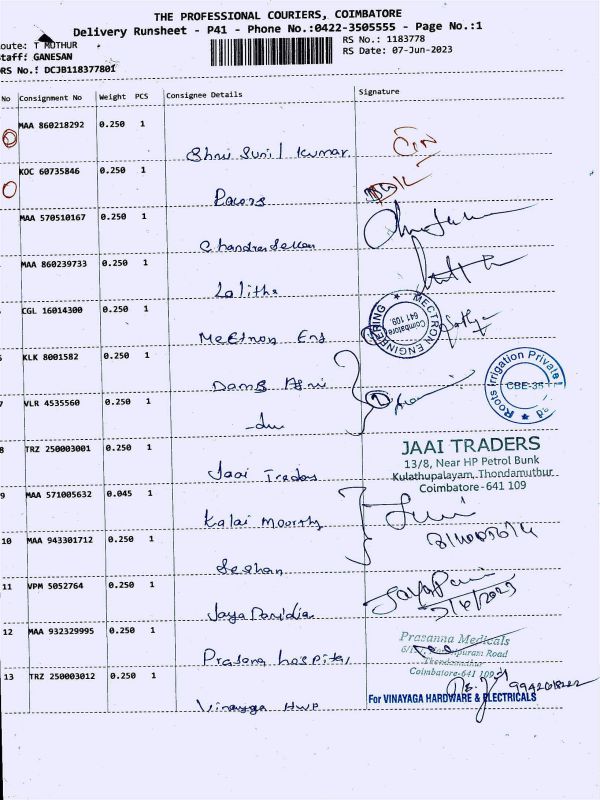 THE PROFESSIONAL COURIERS, COIMBATORE
Delivery Runsheet - P41 - Phone No.:0422-3505555 - Page No.:1
oute: T MUTHUR
RS No.: 1183778
taff: GANESAN
RS Date: 07-Jun-2023
DRS No.: DCJB118377801
No Consignment No Weight PCS Consignee Details Signature
MAA 860218292 0.250 1
Shri Sunil Kumar
KOC 60735846 0.250 1
MAA 570510167 0.250 1
Chandrasekar
MAA 860239733 0.250 1
Lalitha
CGL 16014300 0.250 1
MECTRON ENGINEERING
Coimbatore
641 109.
KLK 8001582 0.250 1
Roots Irrigation Private
CBE-35
VLR 4535560 0.250 1
8 TRZ 250003001 0.250 1
Jaai Traders
JAAI TRADERS
13/8, Near HP Petrol Bunk
Kulathupalayam, Thondamuthur
Coimbatore-641 109
9 MAA 571005632 0.045 1
Kalai Moorthy
10 MAA 943301712 0.250 1
Seshan
11 VPM 5052764 0.250 1
7/6/2023
12 MAA 932329995 0.250 1
Prasanna Medicals
Road
Coimbatore-641 109
13 TRZ 250003012 0.250 1
For VINAYAGA HARDWARE & ELECTRICALS